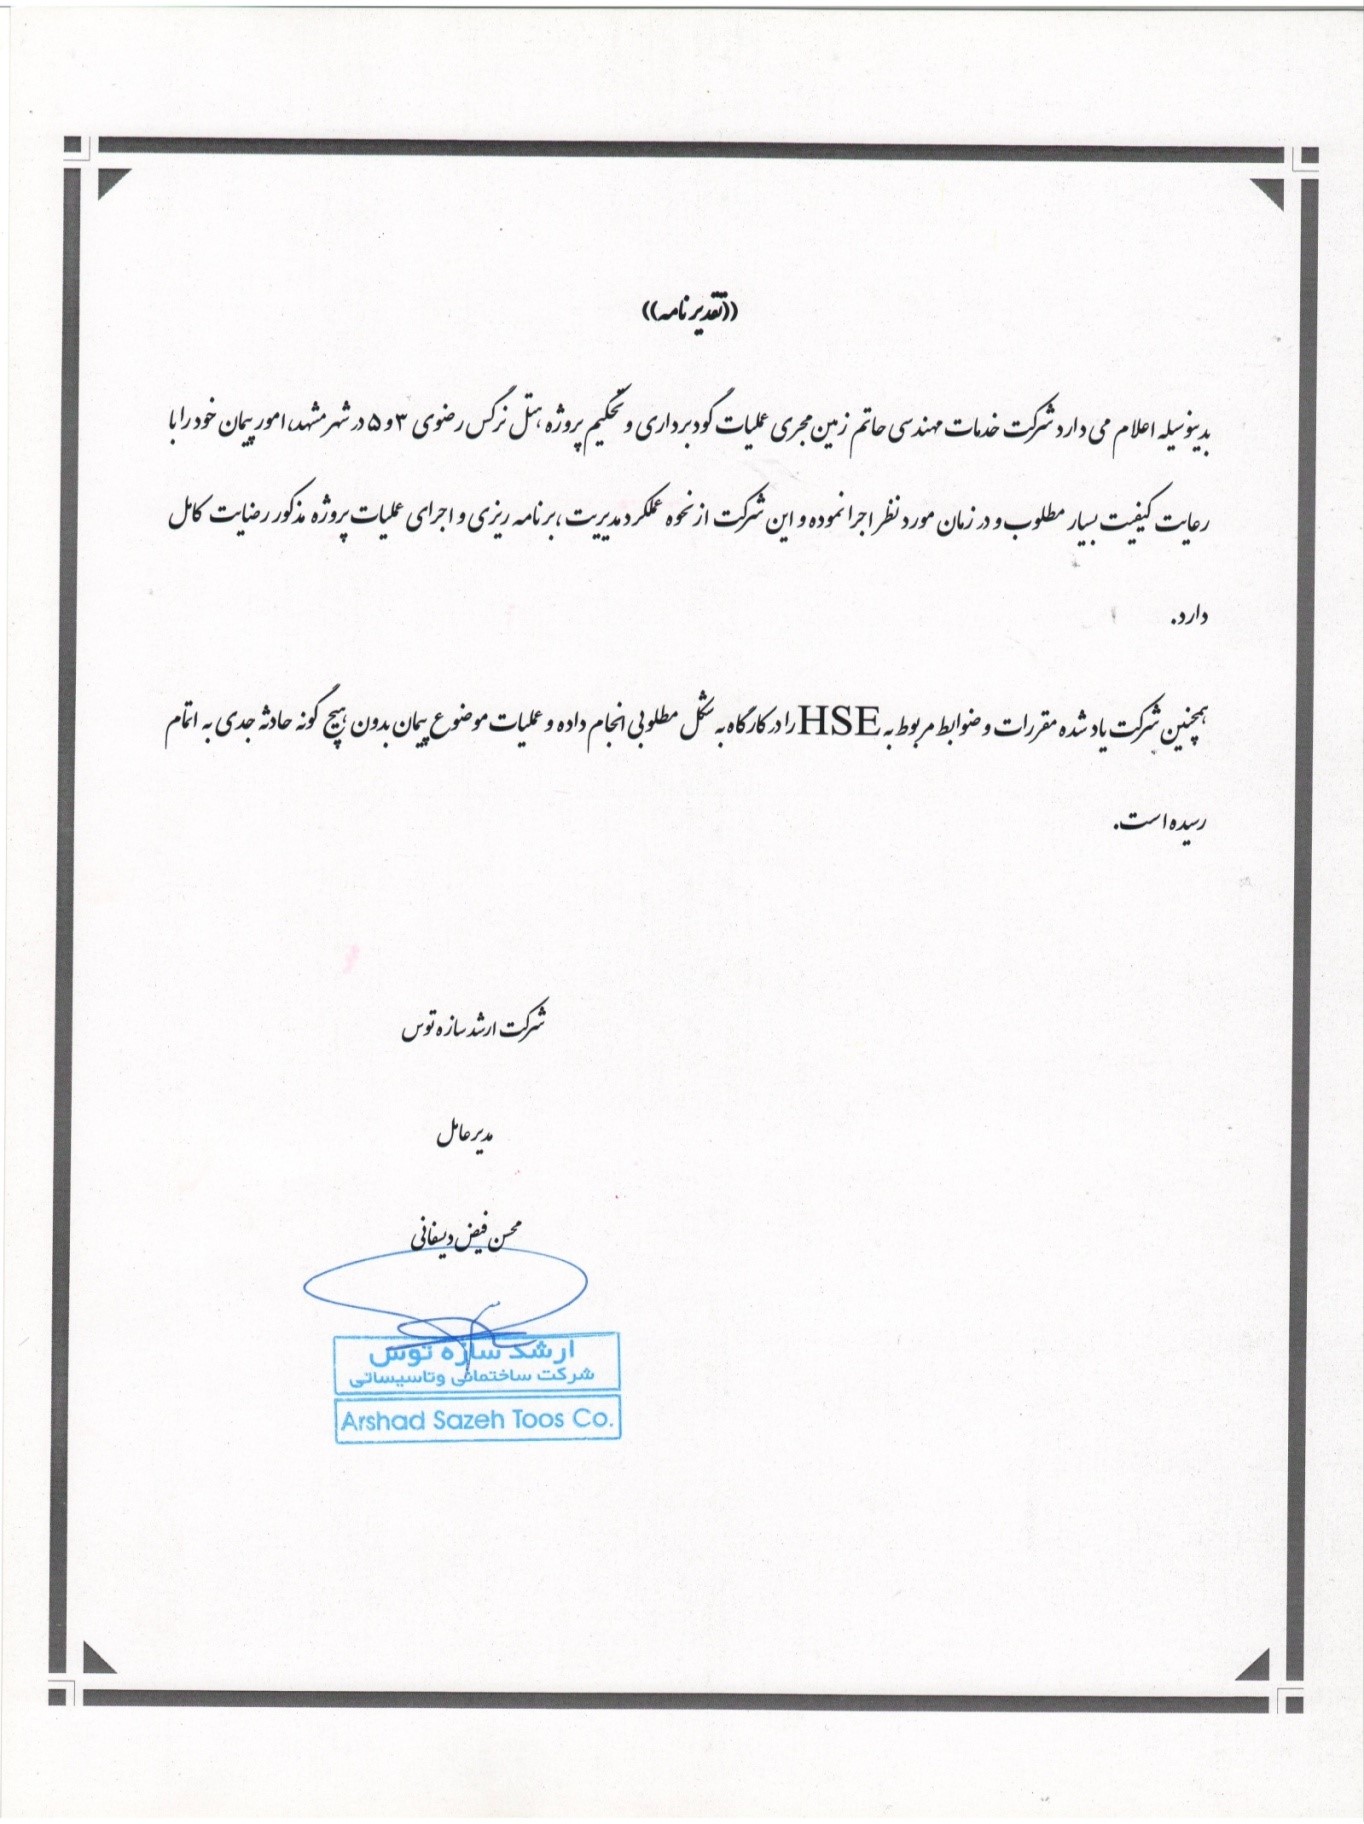 ((تقدیر نامه))
بدینوسیله اعلام می دارد شرکت خدمات مهندسی حاتم زمین مجری عملیات گودبرداری و تحکیم پروژه هتل نرگس رضوی ۳ و ۵ در شهر مشهد، امور پیمان خود را با
رعایت کیفیت بسیار مطلوب و در زمان مورد نظر اجرا نموده و این شرکت از نحوه عملکرد مدیریت ،برنامه ریزی و اجرای عملیات پروژه مذکور رضایت کامل
دارد.
همچنین شرکت یاد شده مقررات و ضوابط مربوط به HSE را در کارگاه به شکل مطلوبی انجام داده و عملیات موضوع پیمان بدون هیچ گونه حادثه جدی به اتمام
رسیده است.
شرکت ارشد سازه توس
مدیر عامل
محسن فیض دیسفانی
ارشد سازه توس
شرکت ساختمانی وتاسیساتی
Arshad Sazeh Toos Co.